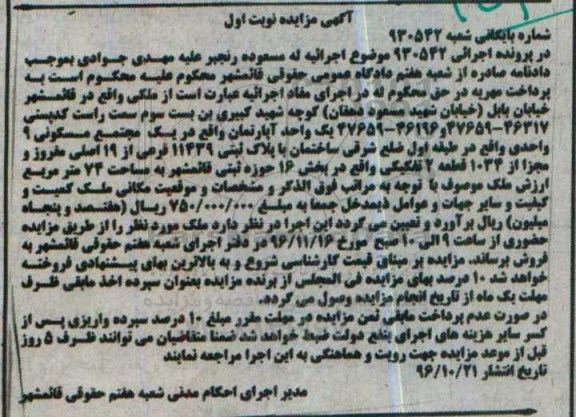 آگهی مزایده نوبت اول
شماره بایگانی شعبه ۹۳۰۵۴۲
در پرونده اجرائی ۹۳۰۵۴۲ موضوع اجرائیه له مسعوده رنجبر علیه مهدی جوادی بموجب
دادنامه صادره از شعبه هفتم دادگاه عمومی حقوقی قائمشهر محکوم علیه محکوم است به
پرداخت مهریه در حق محکوم له در اجرای مفاد اجرائیه عبارت است از ملکی واقع در قائمشهر
خیابان بابل (خیابان شهید مسعود دهقان) کوچه شهید کبیری بن بست سوم سمت راست کدپستی
۴۶۳۱۷-۴۷۶۵۹ و۴۶۱۹۶-۴۷۶۵۹ یک واحد آپارتمان واقع در یک مجتمع مسکونی ۹
واحدی واقع در طبقه اول ضلع شرقی ساختمان با پلاک ثبتی ۱۱۴۳۹ فرعی از ۱۹ اصلی مفروز و
مجزا از ۱۰۳۴ قطعه ۲ تفکیکی واقع در بخش ۱۶ حوزه ثبتی قائمشهر به مساحت ۷۳ متر مربع
ارزش ملک موصوف با توجه به مراتب فوق الذکر و مشخصات و موقعیت مکانی ملک کمیت و
کیفیت و سایر جهات و عوامل ذیمدخل جمعا به مبلغ ۷۵۰/۰۰۰/۰۰۰ ریال (هفتصد و پنجاه
میلیون) ریال برآورد و تعیین می گردد این اجرا در نظر دارد ملک مورد نظر را از طریق مزایده
حضوری از ساعت ۹ الی ۱۰ صبح مورخ ۹۶/۱۱/۱۶ در دفتر اجرای شعبه هفتم حقوقی قائمشهر به
فروش برساند. مزایده بر مبنای قیمت کارشناسی شروع و به بالاترین بهای پیشنهادی فروخته
خواهد شد ۱۰ درصد بهای مزایده فی المجلس از برنده مزایده بعنوان سپرده اخذ مابقی ظرف
مهلت یک ماه از تاریخ انجام مزایده وصول می گردد.
در صورت عدم پرداخت مابقی ثمن مزایده در مهلت مقرر مبلغ ۱۰ درصد سپرده واریزی پس از
کسر سایر هزینه های اجرای بنفع دولت ضبط خواهد شد ضمنا متقاضیان می توانند ظرف ۵ روز
قبل از موعد مزایده جهت رویت و هماهنگی به این اجرا مراجعه نمایند
تاریخ انتشار ۹۶/۱۰/۲۱
مدیر اجرای احکام مدنی شعبه هفتم حقوقی قائمشهر